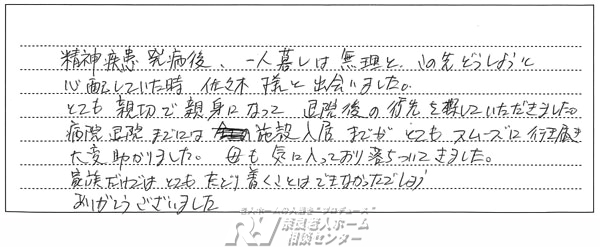 精神疾患発病後、一人暮しは無理と、この先どうしようと
心配していた時 佐々木様と出会いました。
とても親切で親身になって 退院後の行先を探していただきました。
病院退院までには 施設入居までがとてもスムーズに行き
大変助かりました。母も気に入っており落ちついてきました。
家族だけではとてもたどり着くことはできなかったでしょう
ありがとうございました
老人ホームの入居を"プロデュース"
奈良老人ホーム
相談センター